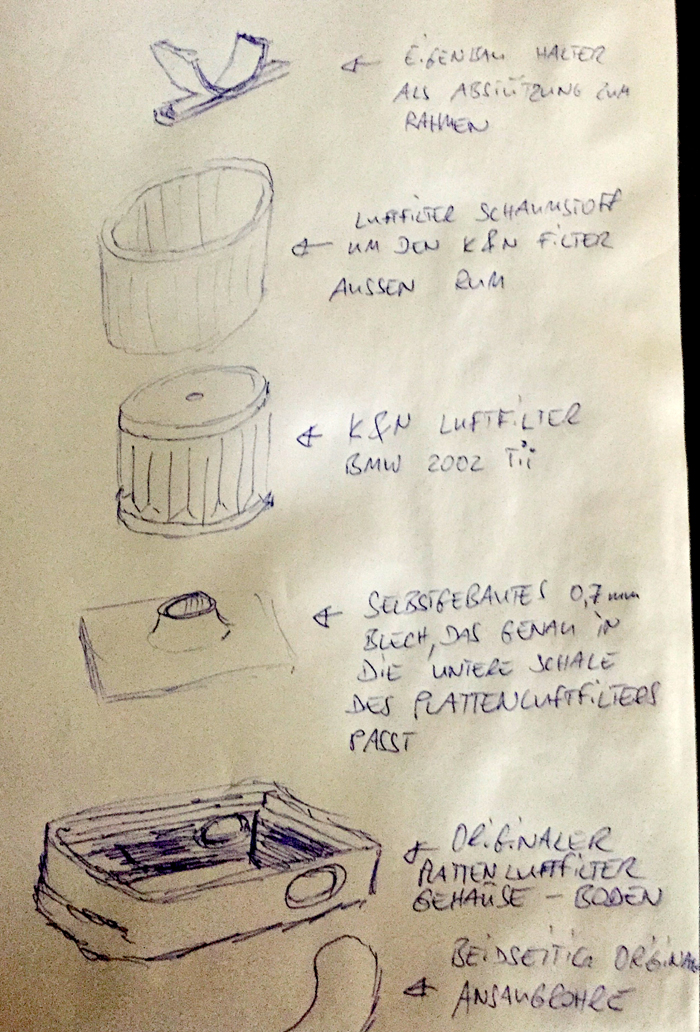 EIGENBAU HALTER
ALS ABSTÜTZUNG ZUM
RAHMEN
LUFTFILTER SCHAUMSTOFF
UM DEN K&N FILTER
AUSSEN RUM
K&N LUFTFILTER
BMW 2002 Tii
SELBSTGEBAUTES 0,7mm
BLECH, DAS GENAU IN
DIE UNTERE SCHALE
DES PLATTENLUFTFILTERS
PASST
ORIGINALER
PLATTENLUFTFILTER
GEHÄUSE - BODEN
BEIDSEITIG ORIGINAL
ANSAUGROHRE